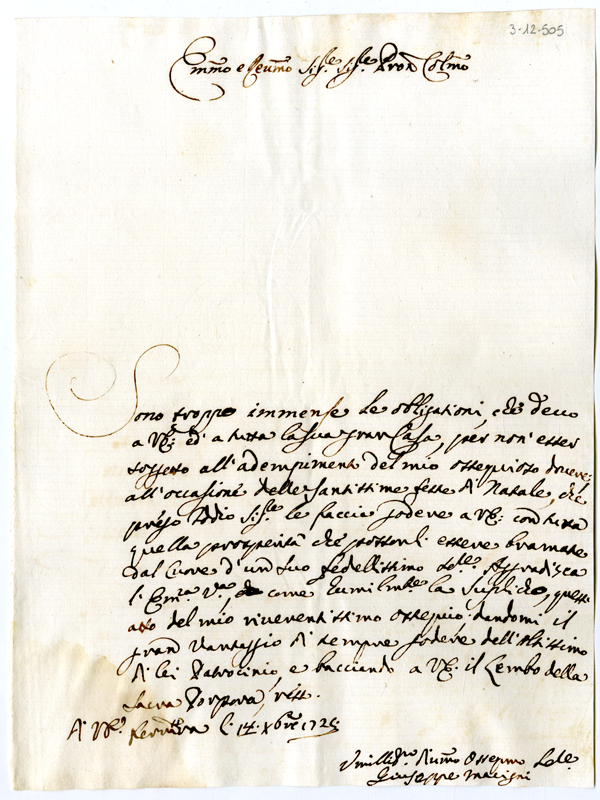 3-12-505
Emmo e Reumo Sigre Sigre Pron Colmo
Sono troppo immense le obligationi, che devo
a VE: ed' a tutta la sua gran Casa, per non' esser
soggetto all'adempimento del mio ossequioso dovere:
all'occasione delle Santissime feste di Natale, che
prego Iddio Sigre le faccia godere a VE: con tutta
quella prosperità che possonsi essere bramate
dal Cuore d'un suo fedellissimo Adre. Aggradisca
l'Emza Va. come humilmte la suplico, questo
atto del mio riverentissimo ossequio dandomi il
gran vantaggio di sempre godere dell'Altissimo
di lei Patrocinio, e bacciando a VE: il Lembo della
Sacra Porpora,
Di VE. Ferrara li 14 Xbre 1725
Umillimo Diumo Ossequmo
Giuseppe Macigni